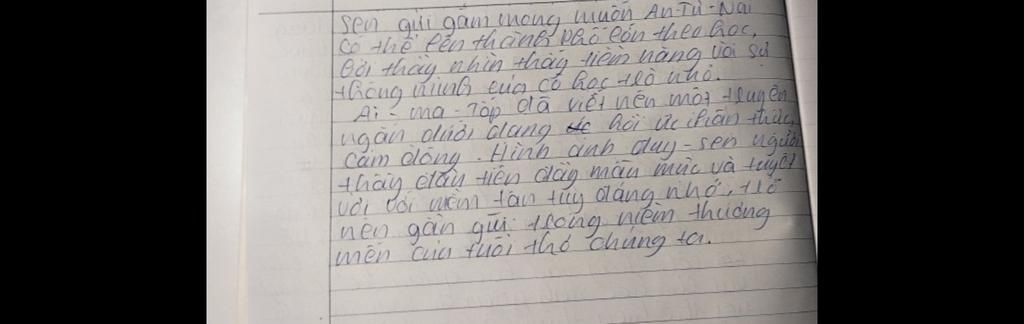 sen gửi gắm mong muốn An-Tư-Nai
có thể lên thành phố lớn theo học,
bởi thầy nhìn thấy tiềm năng với sự
thông minh của cô học trò nhỏ.
Ai-ma-Tốp đã viết nên một truyện
ngắn dưới dạng hồi ức chân thực,
cảm động. Hình ảnh duy-sen người
thầy đầu tiên đầy mẫu mực và tuyệt
vời với niềm tận tụy đáng nhớ, trở
nên gần gũi trong niềm thương
mến của tuổi thơ chúng ta.